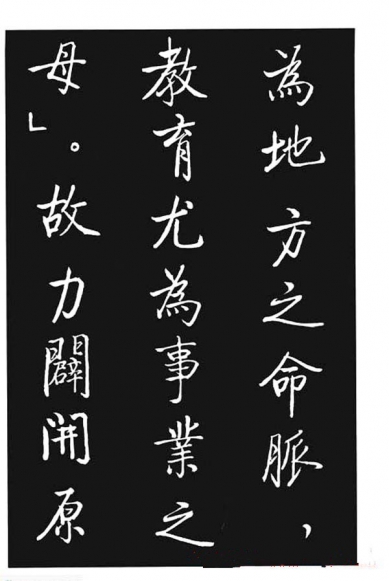 為地方之命脈，
教育尤為事業之
母」。故力闢開原